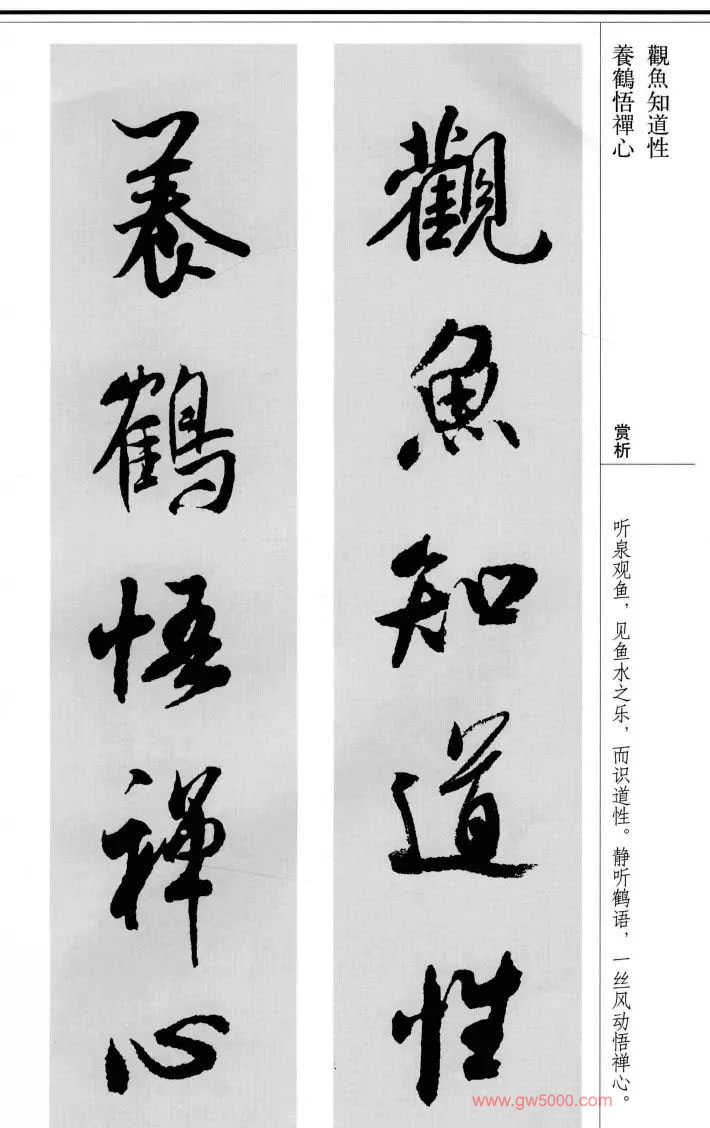 觀魚知道性
養鶴悟禪心
赏析
听泉观鱼，见鱼水之乐，而识道性。静听鹤语，一丝风动悟禅心。
觀魚知道性
養鶴悟禪心
www.gw5000.com